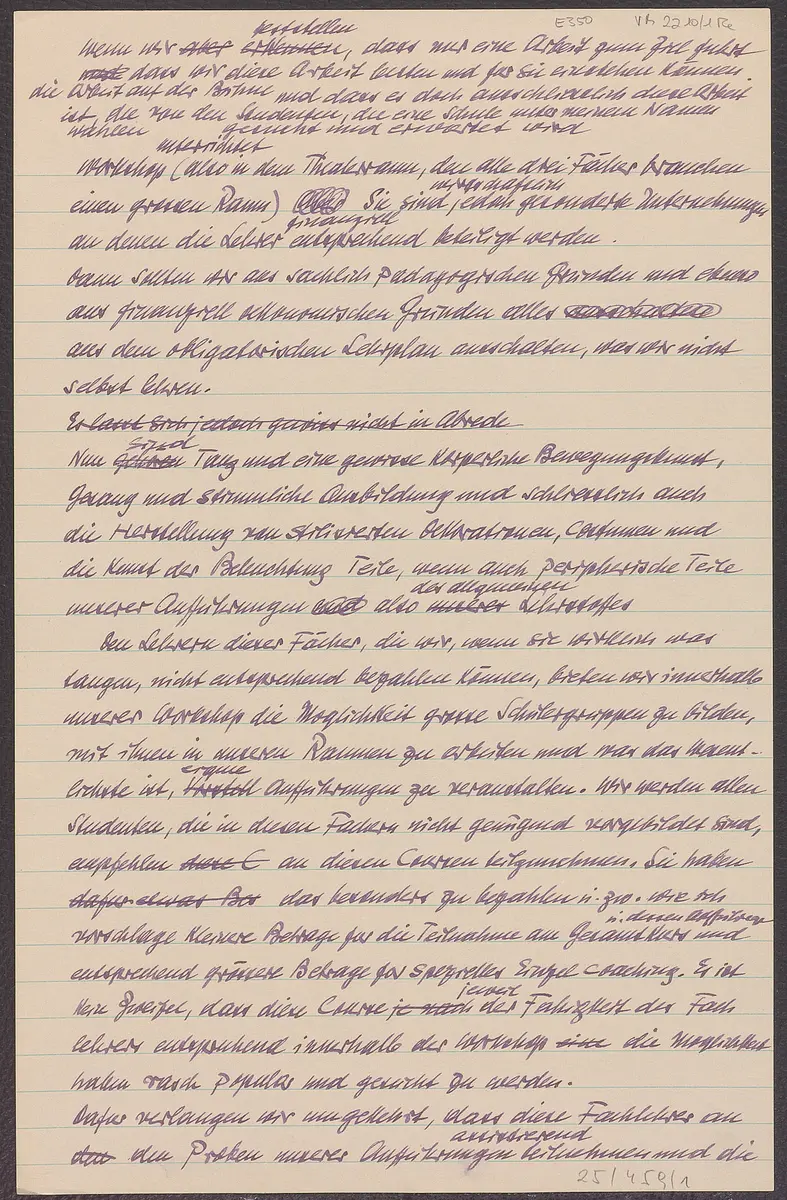 E350 Vh 2210/1 Re
feststellen
Wenn wir aber erkennen, dass nur eine Arbeit zum Ziel führt
dass wir diese Arbeit leisten und für sie einstehen können.
die Arbeit auf der Bühne und dass es doch ausschliesslich diese Arbeit
ist, die von den Studenten, die eine Schule unter meinem Namen
wählen gesucht und erwartet wird
unterrichtet
Workshop (also in dem Theaterraum, den alle drei Fächer brauchen
wirtschaftlich
einen grossen Raum) Sie sind jedoch gesonderte Unternehmungen
finanziell
an denen die Lehrer entsprechend beteiligt werden.
Dann sollten wir aus sachlich pädagogischen Gründen und ebenso
aus finanziell ökonomischen Gründen alles ausschalten
aus dem obligatorischen Lehrplan ausschalten, was wir nicht
selbst lehren.
Es lässt sich jedoch gewiss nicht in Abrede
sind
Nun gehören Tanz und eine gewisse körperliche Bewegungskunst,
Gesang und stimmliche Ausbildung und schliesslich auch
die Herstellung von stilisierten Dekorationen, Costumen und
die Kunst der Beleuchtung Teile, wenn auch peripherische Teile
des allgemeinen
unserer Aufführungen und also unserer Lehrstoffes
Den Lehrern dieser Fächer, die wir, wenn sie wirklich was
taugen, nicht entsprechend bezahlen können, bieten wir innerhalb
unserer Workshop die Möglichkeit grosse Schülergruppen zu bilden,
mit ihnen in unseren Räumen zu arbeiten und was das Wesent-
eigne
lichste ist, Aufführungen zu veranstalten. Wir werden allen
Studenten, die in diesen Fächern nicht genügend vorgebildet sind,
empfehlen diese C an diesen Coursen teilzunehmen. Sie haben
dafür etwas Bes das besonders zu bezahlen u. zw. wie ich
u. dessen Aufführungen
vorschlage kleinere Beträge für die Teilnahme am Gesamtkurs und
entsprechend grössere Beträge für spezielles Einzel Coaching. Es ist
jeweils
kein Zweifel, dass diese Course je nach der Fähigkeit des Fach
lehrers entsprechend innerhalb der Workshop eine die Möglichkeit
haben rasch populär und gesucht zu werden.
Dafür verlangen wir umgekehrt, dass diese Fachlehrer an
assistierend
den den Proben unserer Aufführungen teilnehmen und die
25/459/1